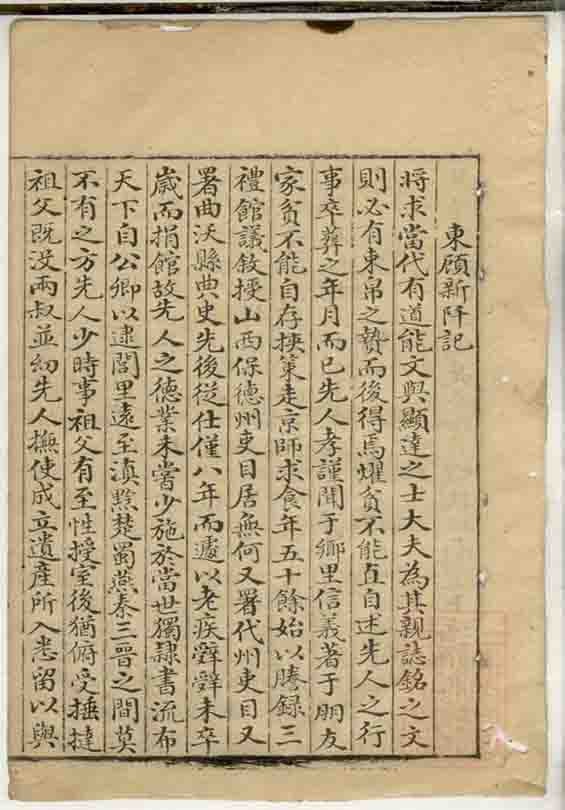 東顧新阡記
將求當代有道能文與顯達之士大夫為其親誌銘之文
則必有束帛之贄而後得焉燿貧不能直自述先人之行
事卒葬之年月而已先人孝謹聞于鄉里信義著于朋友
家貧不能自存挾策走京師求食年五十餘始以謄録三
禮館議敘授山西保德州吏目居無何又署代州吏目又
署曲沃縣典史先後從仕僅八年而遽以老疾辭辭未卒
歲而捐館故先人之德業未嘗少施於當世獨隷書流布
天下自公卿以逮閭里遠至滇黔楚蜀燕秦三晉之間莫
不有之方先人少時事祖父有至性授室後猶俯受捶撻
祖父既沒兩叔並幼先人撫使成立遺産所入悉留以與